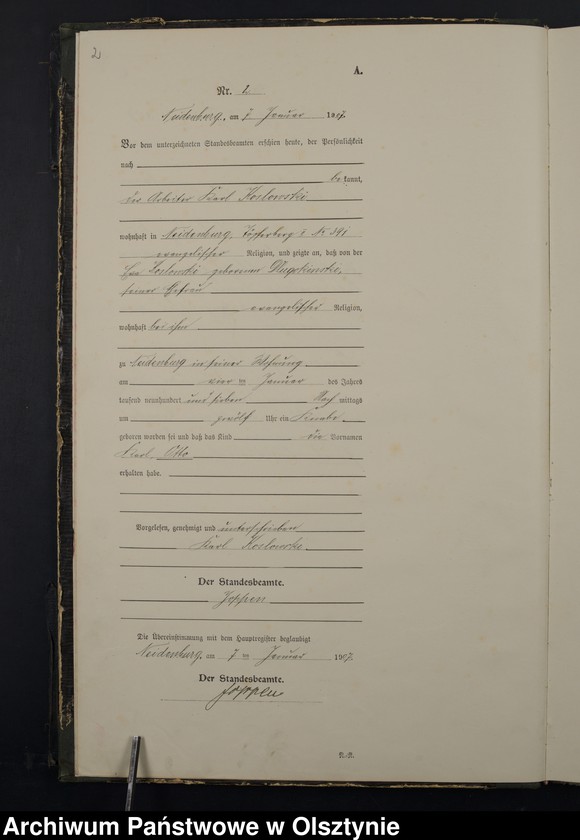 2
A.
Nr. 2
Neidenburg, am 7 Januar 1907.
Vor dem unterzeichneten Standesbeamten erschien heute, der Persönlichkeit
nach
be kannt,
der Arbeiter Karl Koslowski
wohnhaft in Neidenburg, Töpferberg
evangelischer Religion, und zeigte an, daß von der
Koslowski geborenen
seiner Ehefrau
evangelischer Religion,
wohnhaft bei ihm
zu Neidenburg in seiner Wohnung
am vier ten Januar des Jahres
tausend neunhundert und sieben Nach mittags
um zwölf Uhr ein Knabe
geboren worden sei und daß das Kind die Vornamen
Karl Otto
erhalten habe.
Vorgelesen, genehmigt und unterschrieben
Karl Koslowski
Der Standesbeamte.
Joppen
Die Übereinstimmung mit dem Hauptregister beglaubigt
Neidenburg, am 7 ten Januar 1907.
Der Standesbeamte.
Joppen
Archiwum Państwowe w Olsztynie